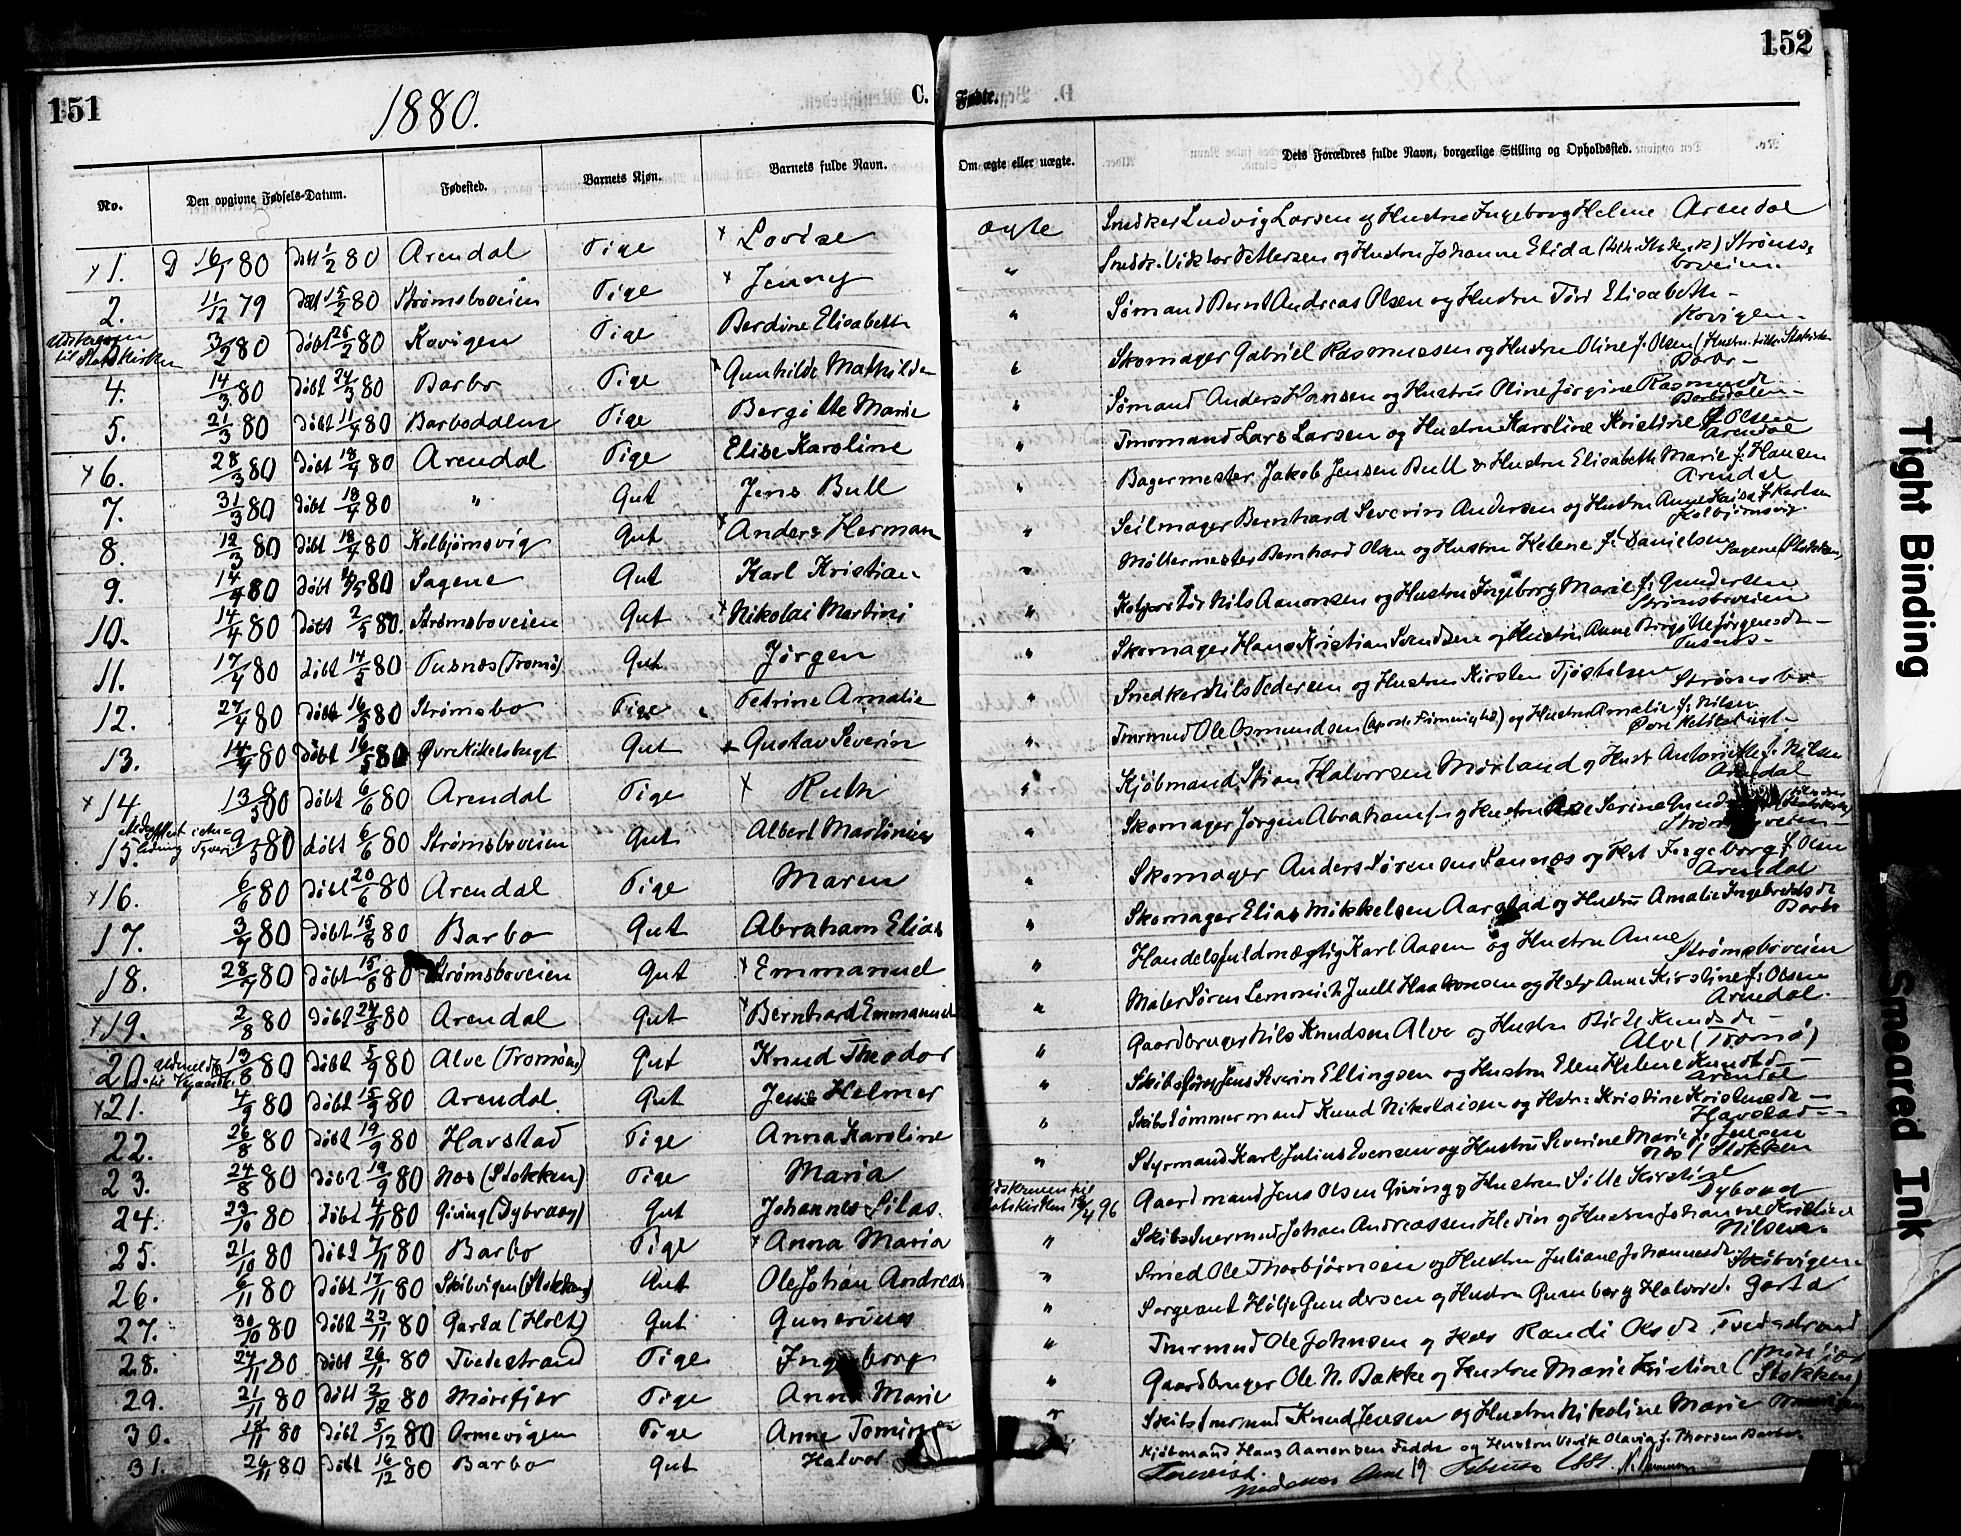 151
152
1880.
C. Fødte.
No. Den opgivne Fødsels-Datum. Fødested. Barnets Kjøn. Barnets fulde Navn. Om ægte eller uægte. Dets Forældres fulde Navn, borgerlige Stilling og Opholdssted.
x 1. D 16/1 80 Døbt 1/2 80 Arendal Pige x Lovise ægte Snedker Ludvig Larsen og Hustru Ingeborg Helene Arendal
2. 11/12 79 Døbt 15/2 80 Strømsboveien Pige x Jenny " Snedk. Viktor Pettersen og Hustru Johanne Elida Strømsboveien.
Udskreven til Statskirken 3/2 80 Døbt 25/2 80 Kovigen Pige Berdine Elisabeth " Sømand Bernt Andreas Olsen og Hustru Elisabeth Kovigen
4. 14/3 80 Døbt 24/3 80 Barbo Pige x Gunhilde Mathilde " Skomager Gabriel Rasmussen og Hustru Oline f. Olsen Barbo
5. 21/3 80 Døbt 11/4 80 Barbodalen Pige Bergitte Marie " Sømand Anders Hansen og Hustru Oline Jørgine Rasmusdt Barbodalen
x 6. 28/3 80 Døbt 18/4 80 Arendal Pige Elise Karoline " Tmrmand Lars Larsen og Hustru Karoline Kristine f. Olsen Arendal
7. 31/3 80 Døbt 18/4 80 " Gut Jens Bull " Bagermester Jakob Jensen Bull & Hustru Elisabeth Marie f. Hansen Arendal
8. 12/3 80 Døbt 18/4 80 Kolbjørnsvig Gut x Anders Herman " Seilmager Bernhard Severin Andersen og Hustru Anne Kaisa f. Karlsen Kolbjørnsvig
9. 14/4 80 Døbt 80 Sagene Gut Karl Kristian " Møllermester Bernhard Olsen og Hustru Helene f. Danielsen Sagene
10. 14/4 80 Døbt 2/5 80. Strømsboveien Gut x Nikolai Martini " Kolportør Nils Aanonsen og Hustru Ingeborg Marie f. Gundersen Strømsboveien
11. 17/4 80 døbt 14/5 80 Pusnes (Tromø) Gut Jørgen " Skomager Hans Kristian Svendsen og Hustru Anne Birgitte Jørgensdt Pusnes
12. 27/4 80 Døbt 16/5 80 Strømsbo Pige Petrine Amalie " Snedker Nils Pedersen og Hustru Kirsten Tjøstolsen Strømsbo
13. 14/4 80 Døbt 16/5 80 Øvre Kittelsbugt Gut Gustav Severin " Tmrmnd Ole Osmundsen og Hustru Amalie f. Nilsen Øvre Kittelsbugt
x 14. 13/5 80 døbt 6/6 80 Arendal Pige x Ruth " Kjøbmand Stian Halvorsen Mørland og Hust Antonette f. Nilsen Arendal
15. 9/5 80 døbt 6/6 80 Strømsboveien Gut Albert Martinius " Skomager Jørgen Abrahams og Hustru Serine Strømsboveien
x 16. 6/6 80 Døbt 20/6 80 Arendal Pige Maren " Skomager Anders Sørensen Sannes og Hst Ingeborg f. Olsen Arendal
17. 3/7 80 Døbt 15/8 80 Barbo Gut Abraham Elias " Skomager Elias Mikkelsen Aarstad og Hustru Amalie Ingebretsdt Barbo
18. 28/7 80 Døbt 15/8 80 Strømsboveien Gut x Emmanuel " Handelsfuldmægtig Karl Aasen og Hustru Anne Strømsboveien
x 19. 2/8 80 Døbt 24/8 80 Arendal Gut x Bernhard Emmanuel " Maler Søren Juell Haakonsen og Hstr Anne Kirstine f. Olsen Arendal.
20. 13/8 80 Døbt 5/9 80 Alve (Tromøen) Gut Knud Theodor " Gaardbruger Nils Knudsen Alve og Hustru Birte Knudsdt Alve (Tromø)
x 21. 4/9 80 Døbt 15/9 80 Arendal Gut Jens Helmer " Jens Severin Ellingsen og Hustru Elen Helene Knudsdt Arendal
22. 26/8 80 Døbt 19/9 80 Havstad Pige Anna Karoline " Skibstømmermand Knud Nikolaisen og Hstr. Kristine Kristensdt Havstad
23. 24/8 80 Døbt 19/9 80 Næs (Stokken) Pige Maria " Styrmand Karl Julius Evensen og Hustru Severine Marie f. Jensen Næs (Stokken
24. 23/10 80 Døbt 4/11 80 Giving (Dybvaag) Gut Johannes Silas. Udskreven til Statskirken 96 Gaardmand Jens Olsen Giving og Hustru Sille Kirstine Dybvaag
25. 21/10 80 Døbt 7/11 80 Barbo Pige x Anna Maria " Skibstmermnd Johan Andreassen Hedin og Hustru Johanne Kristine Nilsen.
26. 6/11 80 Døbt 17/11 80 Skibvigen (Stokken) Gut Ole Johan Andreas " Smed Ole Thorbjørnsen og Hustru Juliane Johannesdt Skibvigen
27. 30/10 80 Døbt 22/11 80 Garta (Holt) Gut Gunerius " Sergeant Helje Gundersen og Hustru Gunborg Halvorsd. Garta
28. 24/11 80 Døbt 26/11 80 Tvedestrand Pige Ingeborg " Tmrmnd Ole Johnsen og Hstr Randi Olsdt Tvedestrand
29. 21/11 80 Døbt 2/12 80 Mørefjær Pige Anna Marie " Gaardbruger Ole N. Bakke og Hustru Marie Kristine (Stokken)
30. 18/11 80 Døbt 5/12 80 Ormevigen Pige Anne " Skibstmrmnd Knud Jensen og Hustru Nikoline Marie
31. 26/11 80 Døbt 16/12 80 Barbo Gut Halvor Kjøbmand Hans Aanonsen Fedde og Hustru Olavia f. Thorsen Barbo
19 Februar 1881.
Tight Binding
Smeared Ink